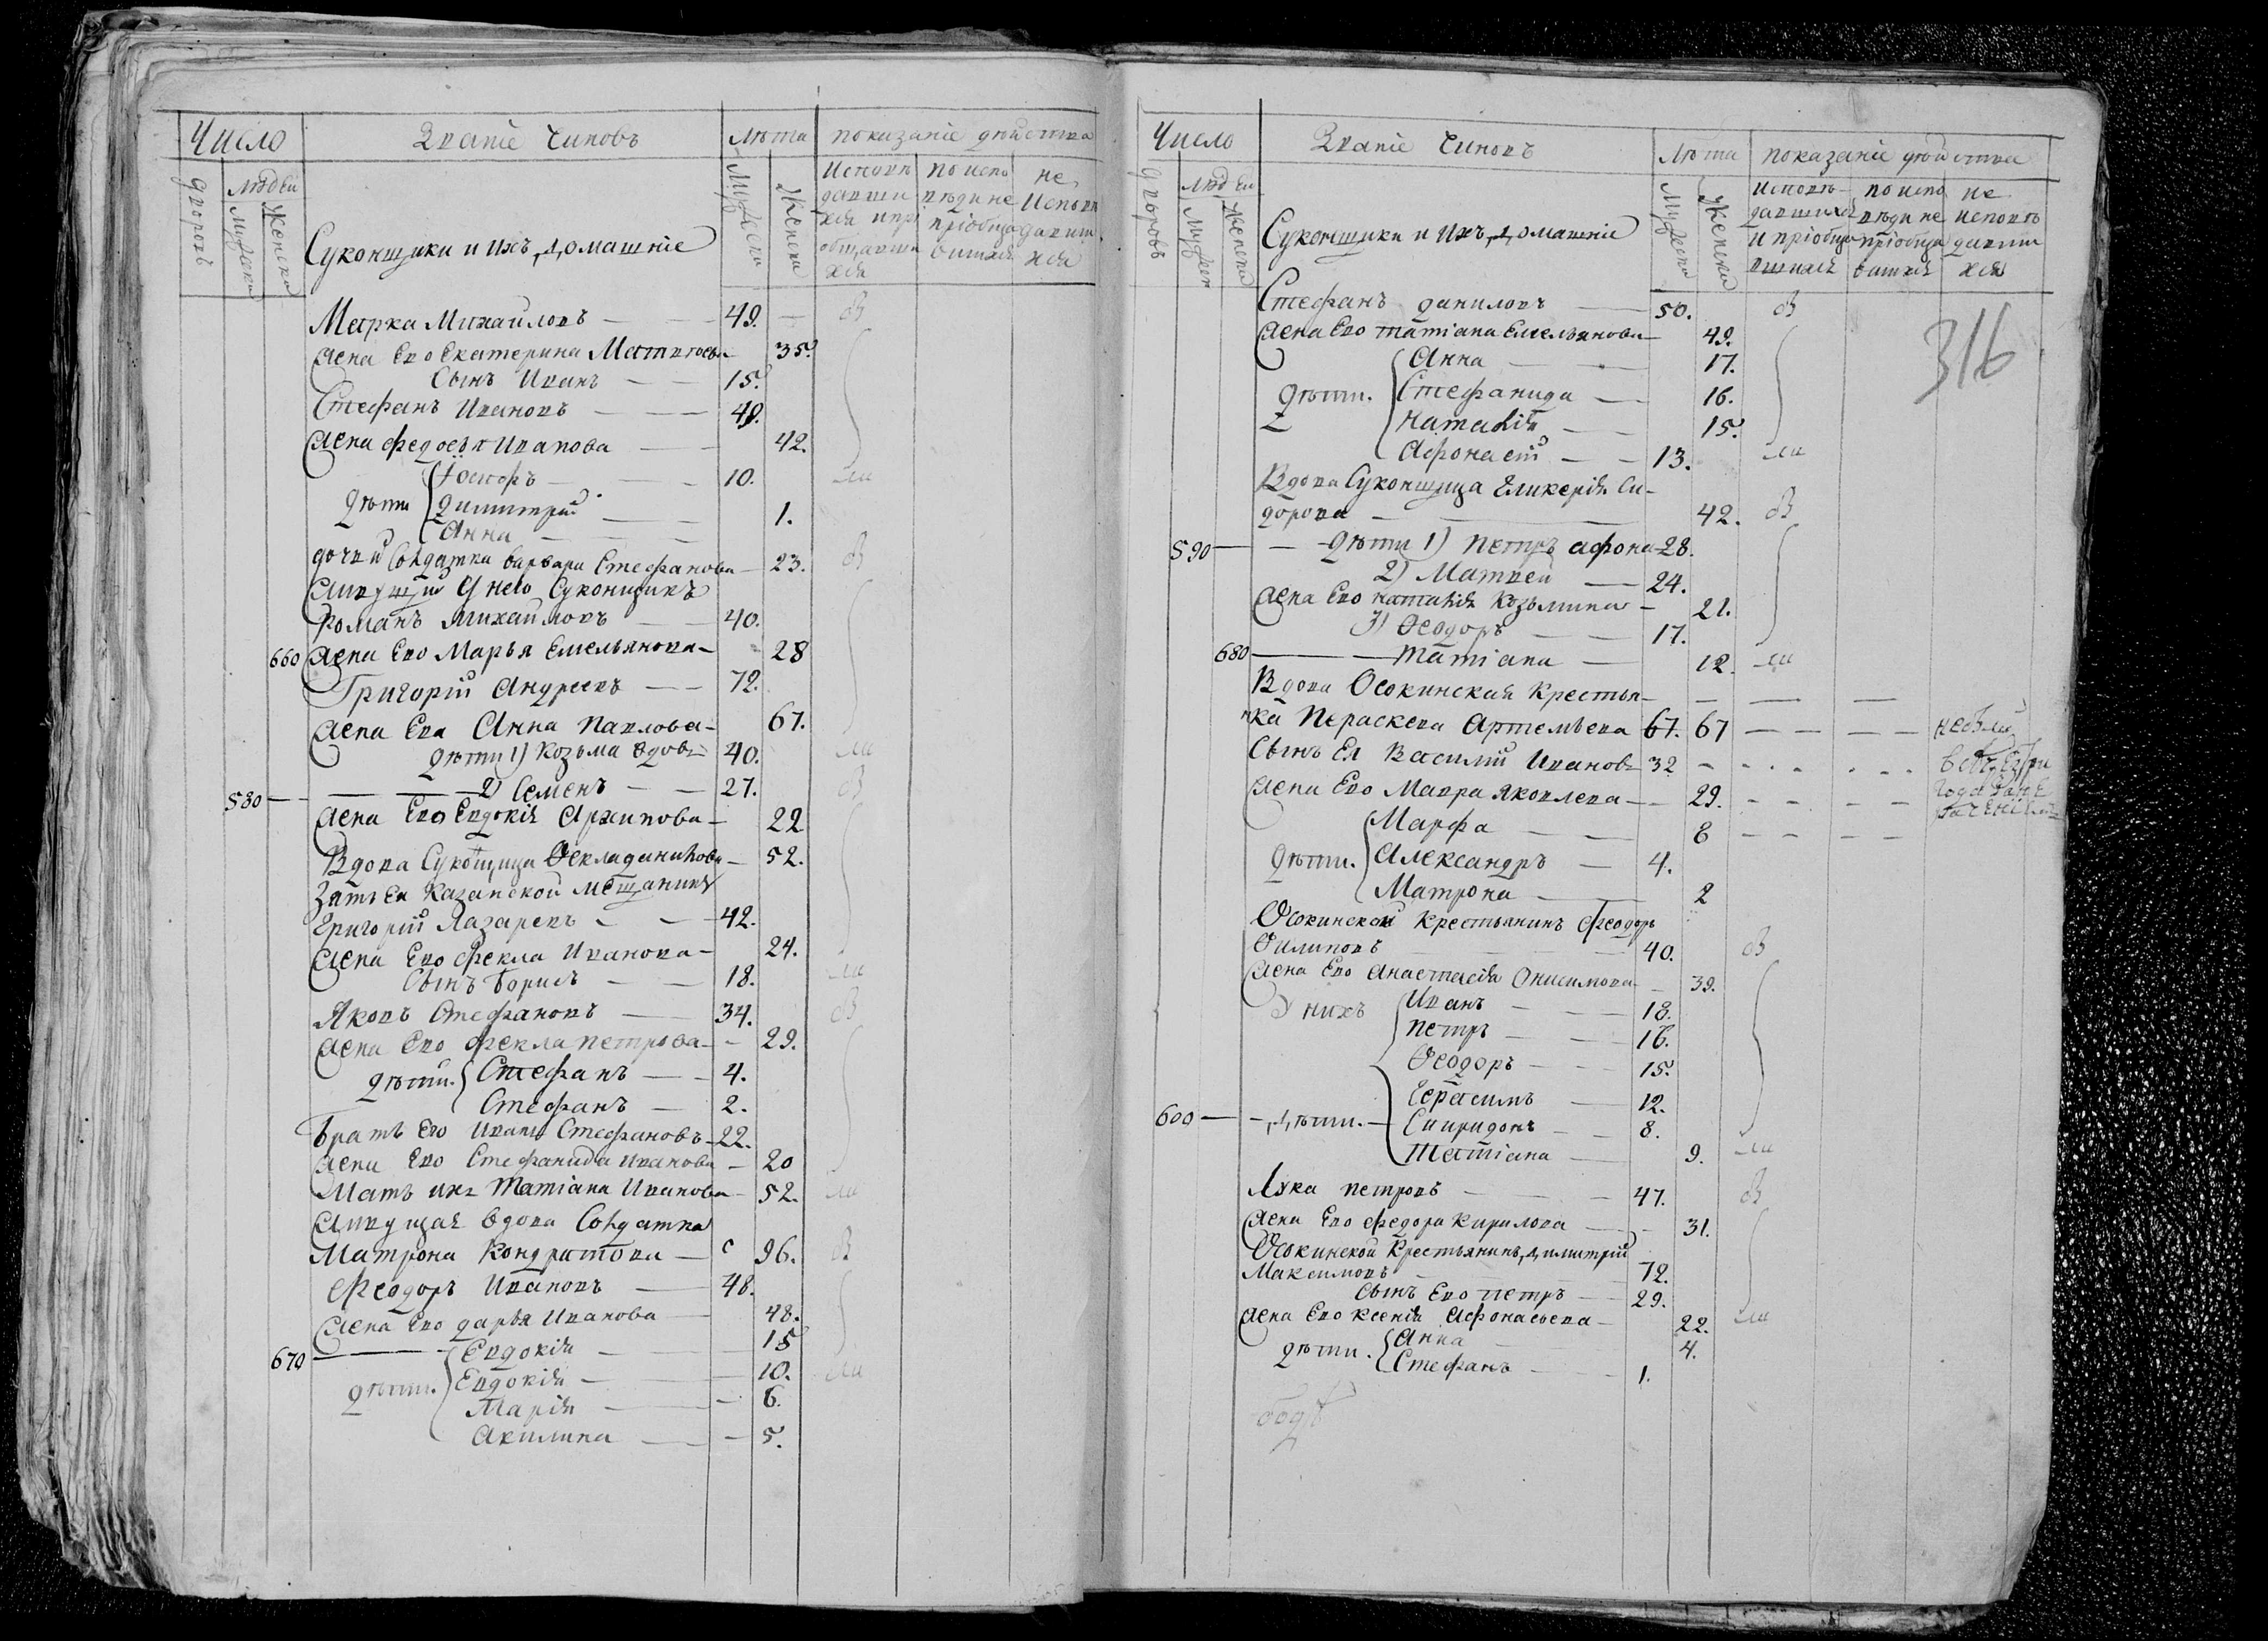 Число Званіе Чиновъ Лѣта показаніе дѣйства
дворовъ людей мужеска женска мужеска женска
Исповѣдавшихся и пріобщавшихся по исповѣди не пріобщавшихся не исповѣдавшихся
Суконщики и ихъ домашніе
Марка Михайловъ — 49. —
Жена Ево Екатерина Матвѣева 35.
Сынъ Иванъ — 15.
Стефанъ Ивановъ — 49.
Жена Федосья Иванова — 42.
Іосифъ — 10.
Дѣти Димитрій — 1.
Анна —
дочь ей Солдатка Варвара Стефанова — 23.
Живущій У него Суконщикъ
Романъ Михайловъ — 40.
660 Жена Ево Марья Емельянова — 28
Григорій Андреевъ — 72.
Жена Ева Анна Павлова — 67.
Дѣти 1) Козьма вдовъ 40.
580 — 2) Семенъ — 27.
Жена Ево Евдокія Архипова — 22
Вдова Суконщица Ѳекла данилова — 52.
Зять Ея Казанской мѣщанинъ
Григорій Лазаревъ — 42.
Жена Ево Фекла Иванова — 24.
Сынъ Борисъ — 18.
Яковъ Стефановъ — 34.
Жена Ево Фекла петрова — 29.
Дѣти. Стефанъ — 4.
Стефанъ — 2.
Братъ Его Иванъ Стефановъ — 22.
Жена Ево Стефанида Иванова — 20
Мать ихъ Татіана Иванова — 52.
Живущая вдова Солдатка
Матрона Кондратова — 96.
Феодоръ Ивановъ — 48.
Жена Ево дарья Иванова — 48.
670 — Евдокія — 15
Дѣти. Евдокія — 10.
Марія — 6.
Акилина — 5.
Число Званіе Чиновъ Лѣта показаніе дѣйства
дворовъ людей мужеск женска мужеска женска
Исповѣдавшихся и пріобщавшихся по исповѣди не пріобщавшихся не исповѣдавшихся
Суконщики и ихъ домашніе
316
Стефанъ даниловъ — 50.
Жена Ево татіана Емельянова — 49.
Анна — 17.
Дѣти. Стефанида — 16.
Наталія — 15.
Афонасій — 13.
Вдова Суконщица Гликерія Си-
дорова — 42.
590 — Дѣти 1) петръ афона- 28.
2) Матвей — 24.
Жена Ево наталія Козьмина — 21.
3) Ѳеодоръ — 17.
680 — татіана — 12.
Вдова Осокинская Крестья-
нка Параскева Артемьева 67. 67 — —
Сынъ Ея Василій Иванов 32
Жена Ево Мавра Яковлева — 29.
Марфа — 8
Дѣти. Александръ — 4.
Матрона — 2
Осокинской Крестьянинъ Феодоръ
Филиповъ — 40.
Жена Ево Анастасія Онисимова — 39.
У нихъ Иванъ — 18.
петръ — 16.
Ѳеодоръ — 15.
Герасимъ — 12.
600 — дѣти. — Спиридонъ — 8.
Татіана — 9.
Лука петровъ — 47.
Жена Ево Федора Кирилова — 31.
Осокинской Крестьянинъ димитрій
Максимовъ — 72.
Сынъ Ево петръ — 29.
Жена Ево Ксенія Афонасьева — 22.
Дѣти. Анна — 4.
Стефанъ — 1.